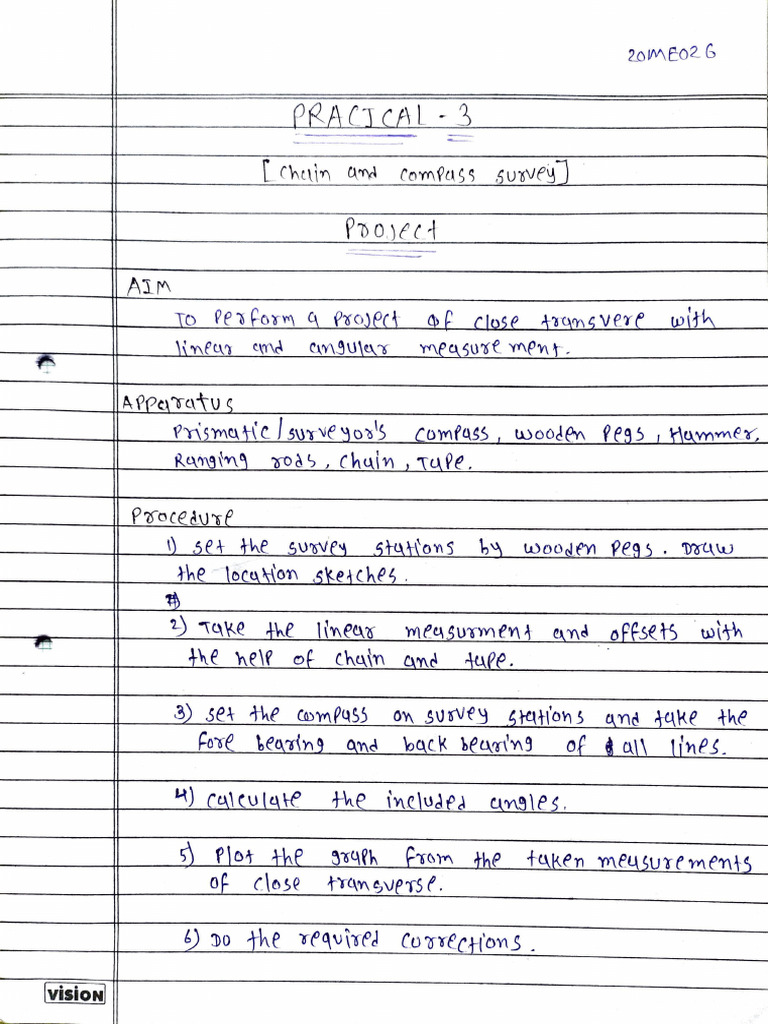 20ME026
PRACICAL - 3
[Chain and compass survey]
Project
AIM
To perform a project of close transvere with
linear and angular measurement.
Apparatus
Prismatic/surveyor's compass, wooden pegs, Hammer,
Ranging rods, chain, Tape.
Procedure
1) set the survey stations by wooden pegs. Draw
the location sketches.
2) Take the linear measurment and offsets with
the help of chain and tape.
3) set the compass on survey stations and take the
fore bearing and back bearing of all lines.
4) calculate the included angles.
5) Plot the graph from the taken measurements
of close transverse.
6) Do the required currections.
vision